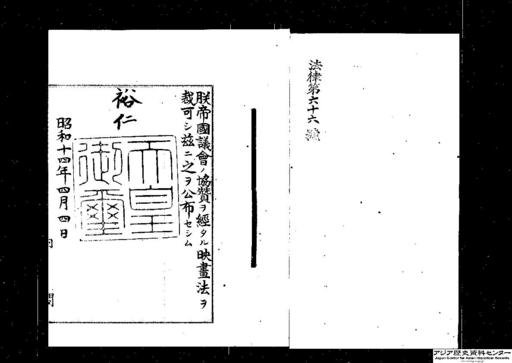 法律第六十六號
朕帝國議會ノ協贊ヲ經タル映畫法ヲ
裁可シ茲ニ之ヲ公布セシム
裕仁
天皇
御璽
昭和十四年四月四日
アジア歴史資料センター
Japan Center for Asian Historical Records